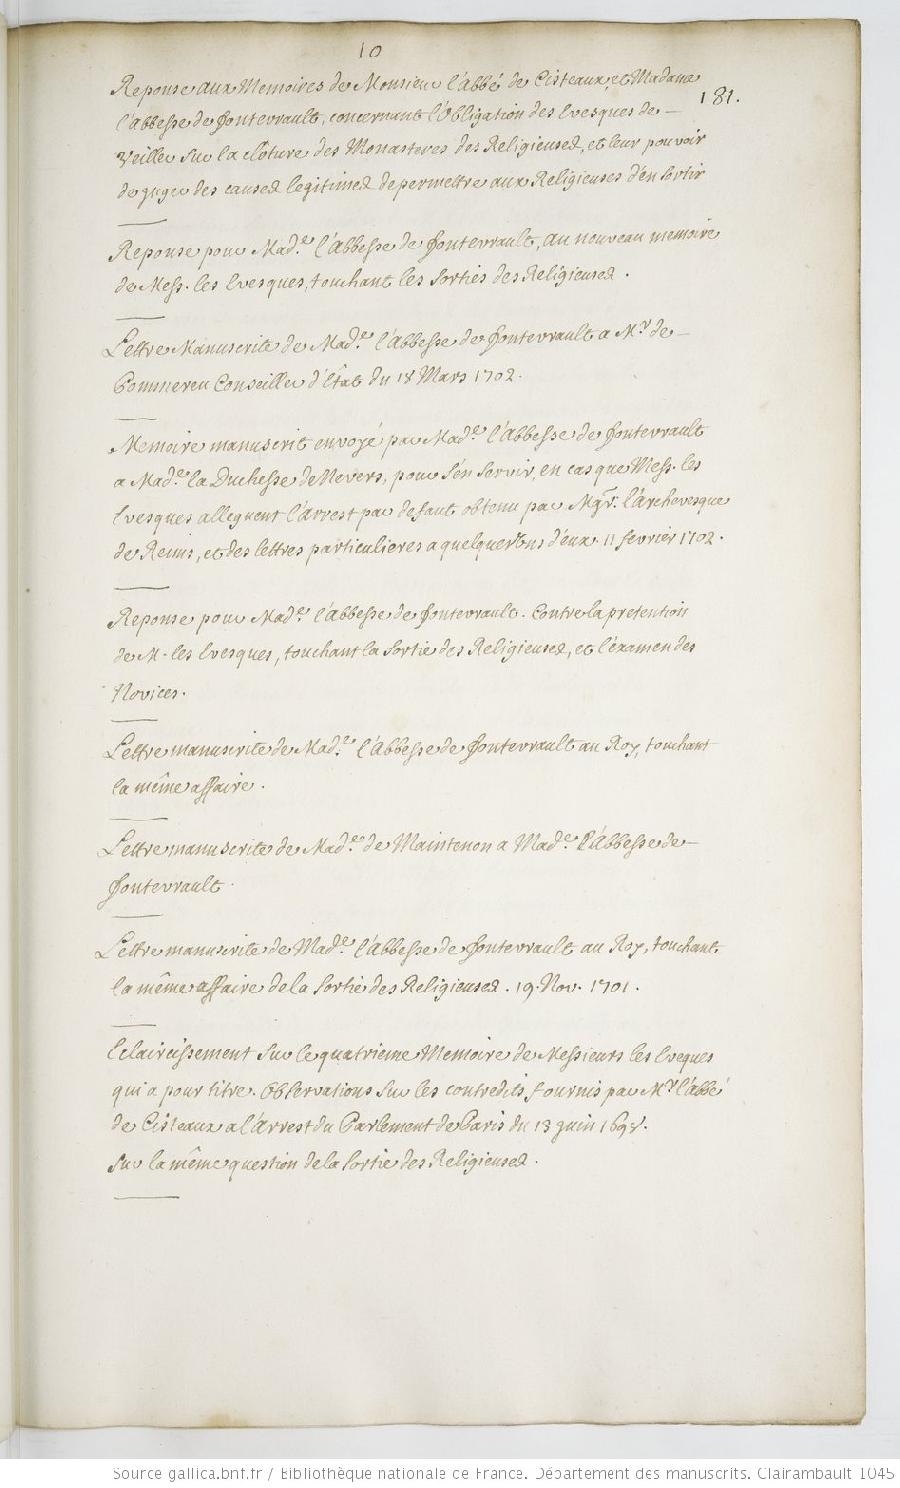 10
181.
Reponse aux Memoires de Monsieur l'abbé de Cisteaux, et Madame
l'abbesse de fontevrault, concernant l'obligation des Evesques de
veiller sur la Cloture des Monasteres des Religieuses, et leur pouvoir
de juger des causes legitimes de permettre aux Religieuses d'en sortir
Reponse pour Made. l'abbesse de fontevrault, au nouveau memoire
de Mess. les Evesques, touchant les sorties des Religieuses.
Lettre Manuscrite de Made. l'abbesse de fontevrault a Mr. de
Pommereu Conseiller d'état du 18 Mars 1702.
Memoire manuscrit envoyé par Made. l'abbesse de fontevrault
a Made. la Duchesse de Nevers, pour s'en servir, en cas que Mess. les
Evesques alleguent l'arrest par defaut obtenu par Mgr. l'archevesque
de Reims, et des lettres particulieres a quelques uns d'eux. 11 fevrier 1702.
Reponse pour Made. l'abbesse de fontevrault. Contre la pretention
de M. les Evesques, touchant la sortie des Religieuses, et l'examen des
Novices.
Lettre manuscrite de Made. l'abbesse de fontevrault au Roy, touchant
la même affaire.
Lettre manuscrite de Made. de Maintenon a Made. l'abbesse de
fontevrault.
Lettre manuscrite de Made. l'abbesse de fontevrault au Roy, touchant
la même affaire de la sortie des Religieuses. 19. Nov. 1701.
Eclaircissement sur le quatrieme Memoire de Messieurs les Eveques
qui a pour titre. Observations sur les contredits fournis par Mr. l'abbé
de Cisteaux a l'arrest du Parlement de Paris du 13 juin
sur la même question de la sortie des Religieuses.
Source gallica.bnf.fr / Bibliothèque nationale de France. Département des manuscrits. Clairambault 1045